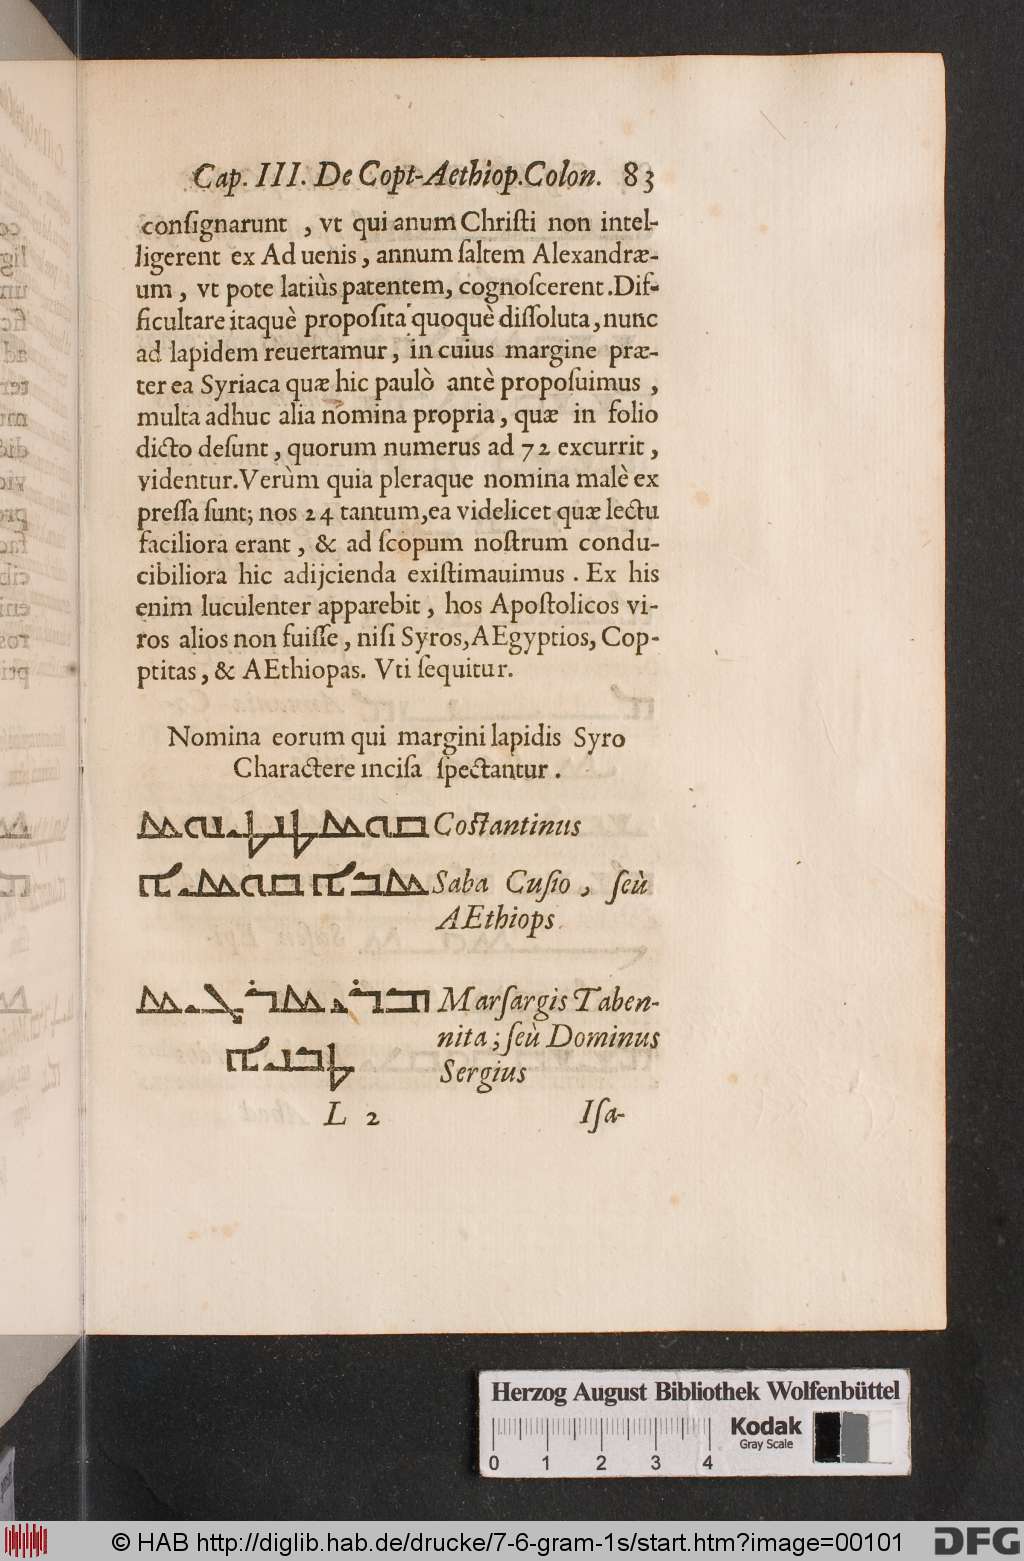 Cap. III. De Copt-Aethiop. Colon. 83
conſignarunt , vt qui anum Chriſti non intel-
ligerent ex Ad uenis, annum ſaltem Alexandræ-
um, vt pote latiùs patentem, cognoſcerent. Dif-
ficultare itaquè propoſita quoquè diſſoluta, nunc
ad lapidem reuertamur, in cuius margine præ-
ter ea Syriaca quæ hic paulò antè propoſuimus ,
multa adhuc alia nomina propria, quæ in folio
dicto deſunt, quorum numerus ad 72 excurrit ,
videntur. Verùm quia pleraque nomina malè ex
preſſa ſunt; nos 24 tantum, ea videlicet quæ lectu
faciliora erant, & ad ſcopum noſtrum condu-
cibiliora hic adijcienda exiſtimauimus . Ex his
enim luculenter apparebit, hos Apoſtolicos vi-
ros alios non fuiſſe, niſi Syros, AEgyptios, Cop-
ptitas, & AEthiopas. Vti ſequitur.
Nomina eorum qui margini lapidis Syro
Charactere inciſa ſpectantur .
ܩܘܣܛܢܛܝܢܘܣ Coſtantinus
ܣܒܐ ܩܘܣܝܐ Saba Cuſio , ſeù
AEthiops.
ܡܪܝ ܣܪܓܝܣ Marſargis Taben-
ܛܒܢܝܐ nita; ſeù Dominus
Sergius
L 2 Iſa-
Herzog August Bibliothek Wolfenbüttel
Kodak
Gray Scale
0 1 2 3 4
© HAB http://diglib.hab.de/drucke/7-6-gram-1s/start.htm?image=00101
DFG